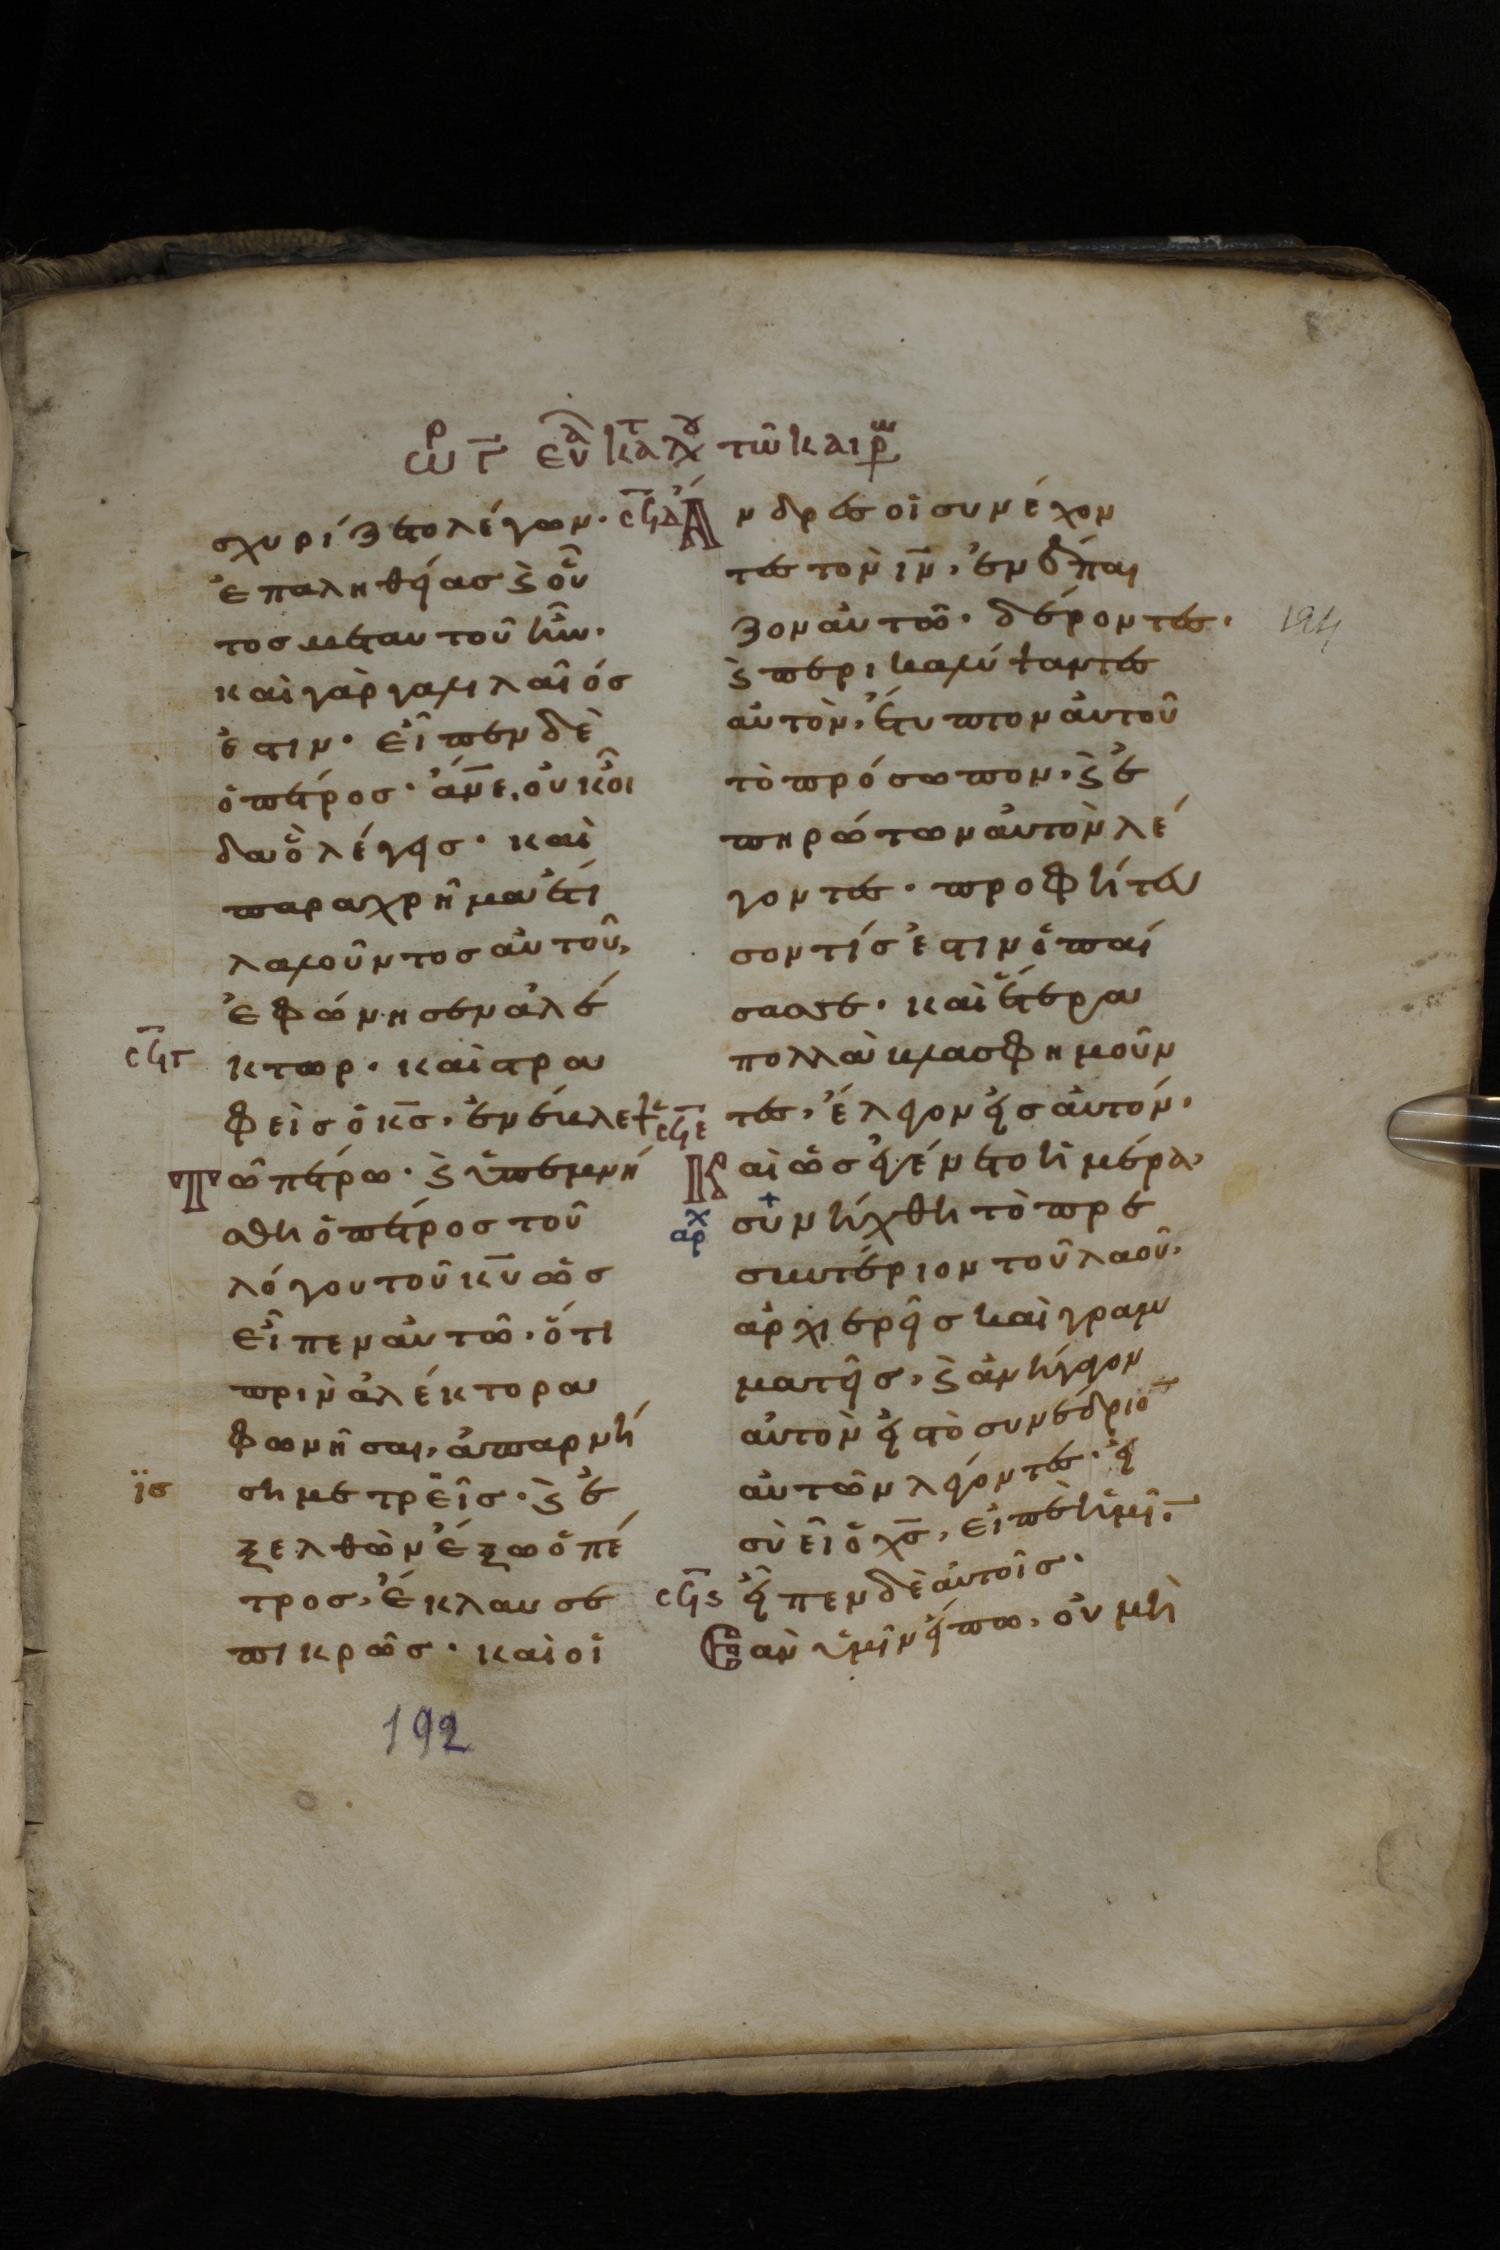 ὥρ γ̄ εὐα κατ λου τῶ καιρῶ
σχυρίζετο λέγων·
ἐπαληθείας ϗ οὗ
τος μεταυτοῦ ἦν·
καὶ γὰρ γαλιλαῖός
ἐστιν· εἶπεν δὲ
ὁ πέτρος· ἄν̅ε, οὐκ οἶ
δα ὃ λέγεις· καὶ
παραχρῆμα ἔτι
λαλοῦντος αὐτοῦ,
ἐφώνησεν ἀλέ
σ̅ξ̅γ
κτωρ· καὶ στρα
φεὶς ὁ κ̅ς, ἐνέβλεψε
τῶ πέτρω· ϗ ὑπεμνή
σθη ὁ πέτρος τοῦ
λόγου τοῦ κ̅υ ὡς
εἶπεν αὐτῶ· ὅτι
πρὶν ἀλέκτορα
φωνῆσαι, ἀπαρνή
ση με τρεῖς· ϗ ἐ
ξελθὼν ἔξω ὁ πέ
τρος, ἔκλαυσε
πικρῶς· καὶ οἱ
192
σ̅ξ̅δ
Ἄνδρες οἱ συνέχον
τες τὸν ι̅ν, ἐνέπαι
ζον αὐτῶ· δέροντες·
ϗ περικαλύψαντες
αὐτὸν, ἔτυπτον αὐτοῦ
τὸ πρόσωπον, ϗ ἐ
πηρώτων αὐτὸν λέ
γοντες· προφήτευ
σον τίς ἐστιν ὁ παί
σας σε· καὶ ἕτερα
πολλὰ βλασφημοῦν
σ̅ξ̅ε
τες, ἔλεγον εἰς αὐτόν·
Καὶ ὡς ἐγένετο ἡμέρα,
αρχ
συνήχθη τὸ πρε
σβυτέριον τοῦ λαοῦ,
ἀρχιερεῖς καὶ γραμ
ματεῖς, ϗ ἀνήγαγον
αὐτὸν εἰς τὸ συνέδριο̅
αὐτῶν λέγοντες· εἰ
σὺ εἶ ὁ χ̅ς, εἰπὲ ἡμῖ̅·
σ̅ξ̅ϛ
εἶπεν δὲ αὐτοῖς·
Ἐὰν ὑμῖν εἴπω, οὐ μὴ
194